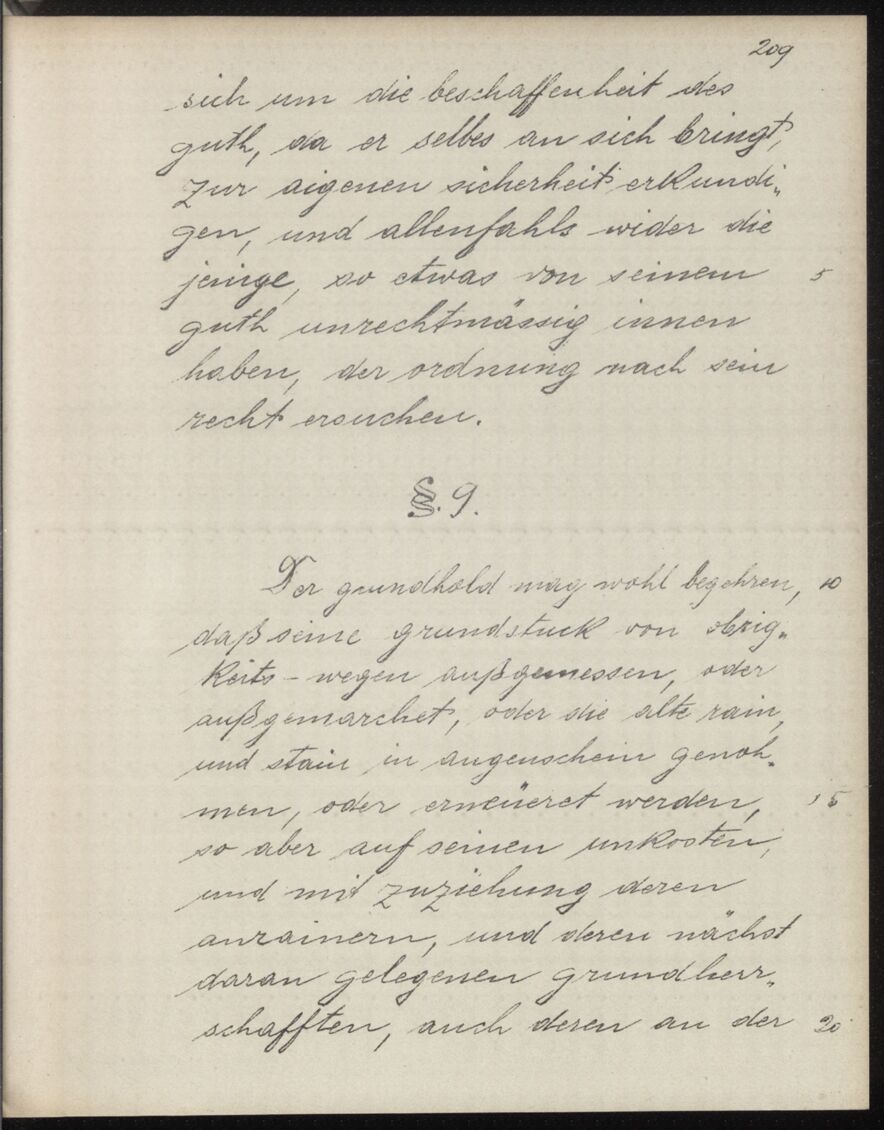 209
sich um die beschaffenheit des
guth, da er selbes an sich bringt,
zur aigenen sicherheit erkundi„
gen, und allenfahls wider die
jenige, so etwas von seinem 5
guth unrechtmässig innen
haben, der ordnung nach sein
recht ersuchen.
§. 9.
Der grundhold mag wohl begehren, 10
daß seine grundstuck von obrig„
keits-wegen außgemessen, oder
außgemarchet, oder die alte rain,
und stain in augenschein genoh„
men, oder erneüeret werden, 15
so aber auf seinen unkosten,
und mit zuziehung deren
anrainern, und deren nächst
daran gelegenen grundherr„
schafften, auch deren an der 20